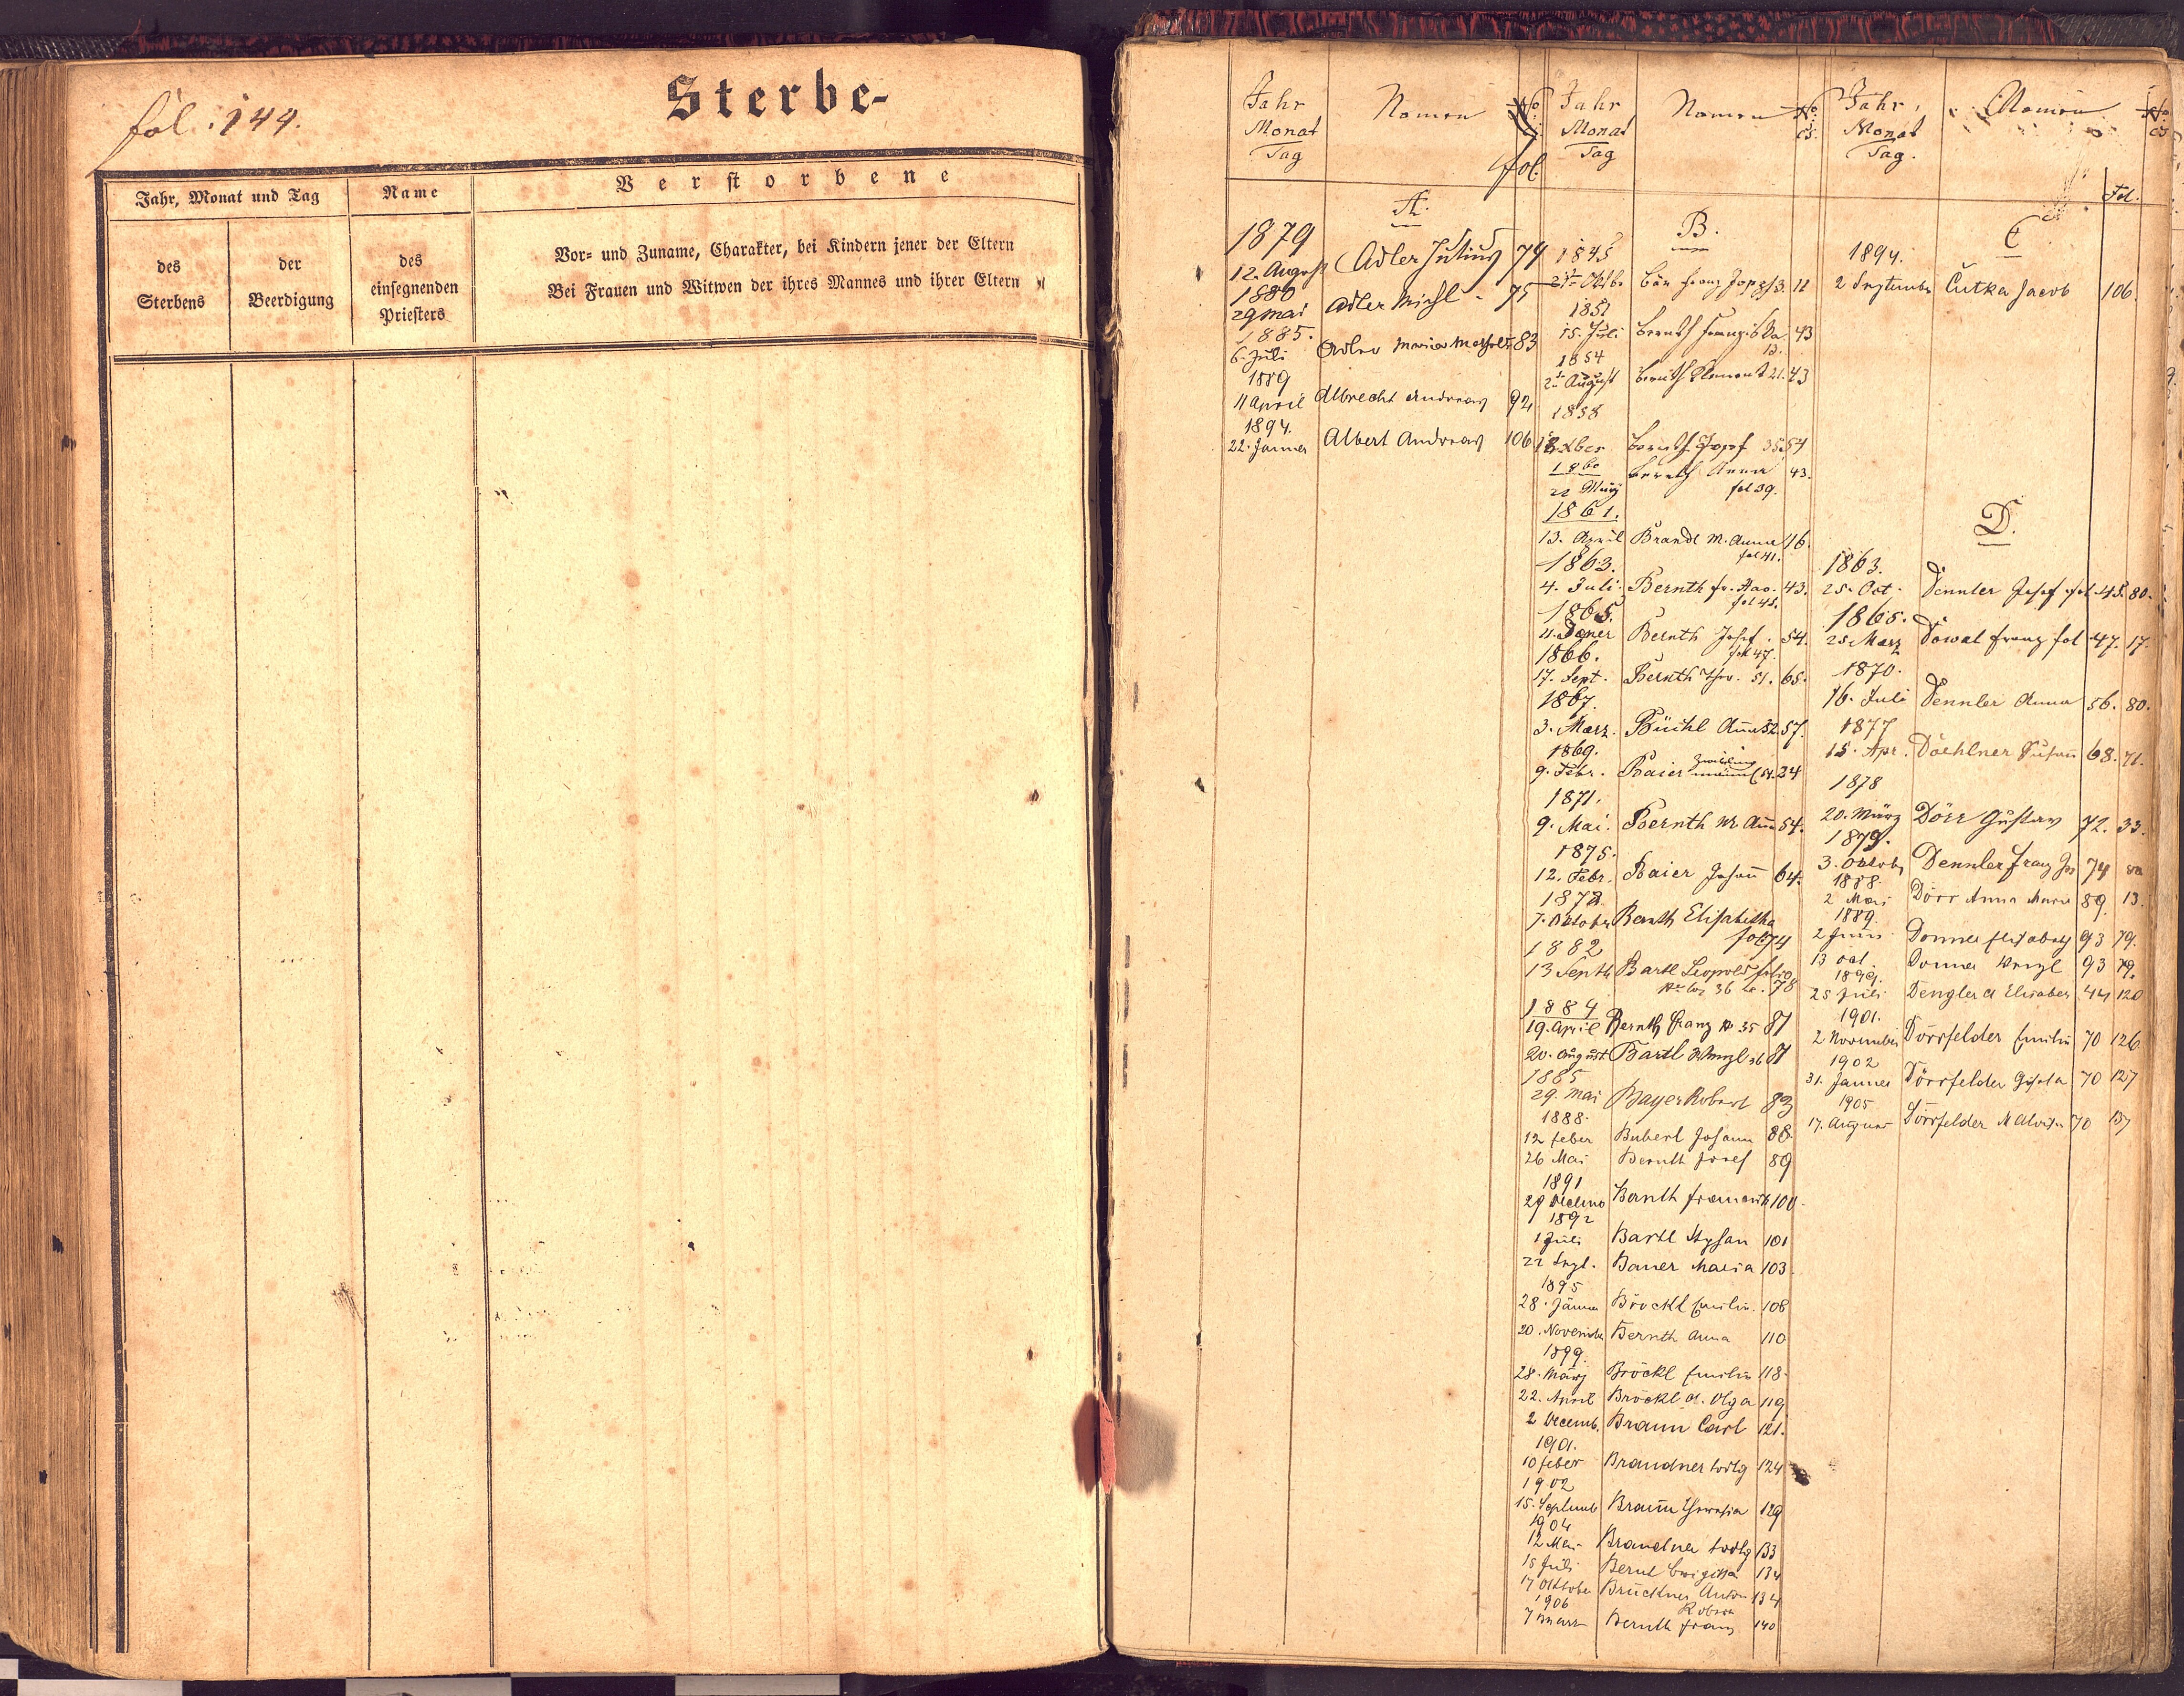 fol. 144.
Sterbe-
Jahr, Monat und Tag
Name
Verstorbene
des
Sterbens
der
Beerdigung
des
einsegnenden
Priesters
Vor- und Zuname, Charakter, bei Kindern jener der Eltern
Bei Frauen und Witwen der ihres Mannes und ihrer Eltern
Jahr Namen No
Monat
Tag
fol.
A.
1879
12. August Adler Julius 74
1880
29 Mai Adler 75
1885.
6. Juli Adler Maria 83
1889
11 April Albrecht Andreas 92
1894.
22. Jänner Albert Andreas 106
Jahr Namen No
Monat cs.
Tag
B.
1845
Franz 12
15. Juli Bernth Franziska 43
13.
1854
August Bernth Clement 21. 43
1858
Bernth Josef 35 54
1860
Bernth Anna 43.
fol 39.
1861.
13. April Brandl M. Anna 16.
fol 41.
1863.
4. Juli. Bernth 43.
fol 45.
1865.
Bernth Josef. 54.
fol 47.
1866.
17. Sept. Bernth 51. 65.
1867.
3. März. Büchl Aña 52. 57.
1869.
9. Febr. Baier Zwilling 54. 24
1871.
9. Mai. Bernth Aña 54.
1875.
12. Febr. Baier Johañ 64.
7. Oktober Bernth Elisabetha
fol 74
1882
13 Septb Bartl Leopold folio
36 78
1884
19. April Bernth Franz 35 81
20. August Bartl 36 81
1885
29. Mai Bayer Robert 83
1888.
12 Feber Buberl Johann 88.
26 Mai Bernth Josef 89
1891
29 Bernth 100
1892
1 Juli Bartl 101
22 Sept. Bauer Maria 103
1895
28. Jänner Bröckl Emilie 108
20. November Bernth Anna 110
1899.
28. März Bröckl Emilie 118.
22. April Bröckl Olga 119
2 Decemb. Braun Carl 121.
1901.
10 Feber Brandner 124
1902
15. Septemb Braun Theresia 129
1904
12 Mai Brandner 133
15 Juli Bernt 134
17 Oktober Brückner Anton 134
Robert
1906
7 März Bernth Franz 140
Jahr, Namen No
Monat cs
Tag.
Fol.
C
1894.
2 September Cutka Jacob 106.
D.
1863.
25. Oct. Dennler Josef fol. 45. 80.
1865.
25. März Franz fol 47. 17.
1870.
16. Juli Dennler Anna 56. 80.
1877
15. Apr. 68. 71.
1878
20. März Dörr Gustav 72. 33.
1879.
3. Oktob Dennler Franz Jos 74
1888.
2 Mai Dörr Anna Maria 89. 13.
1889.
2 Juni Donner Elisabeth 93 79.
13 Oct Donner 93 79.
1899.
25 Juli Dengler Elisabet 44 120
1901.
2 November Dörrfelder Emilie 70 126
1902
31. Jänner Dörrfelder Gisela 70 127
1905
17. August Dörrfelder 70 137